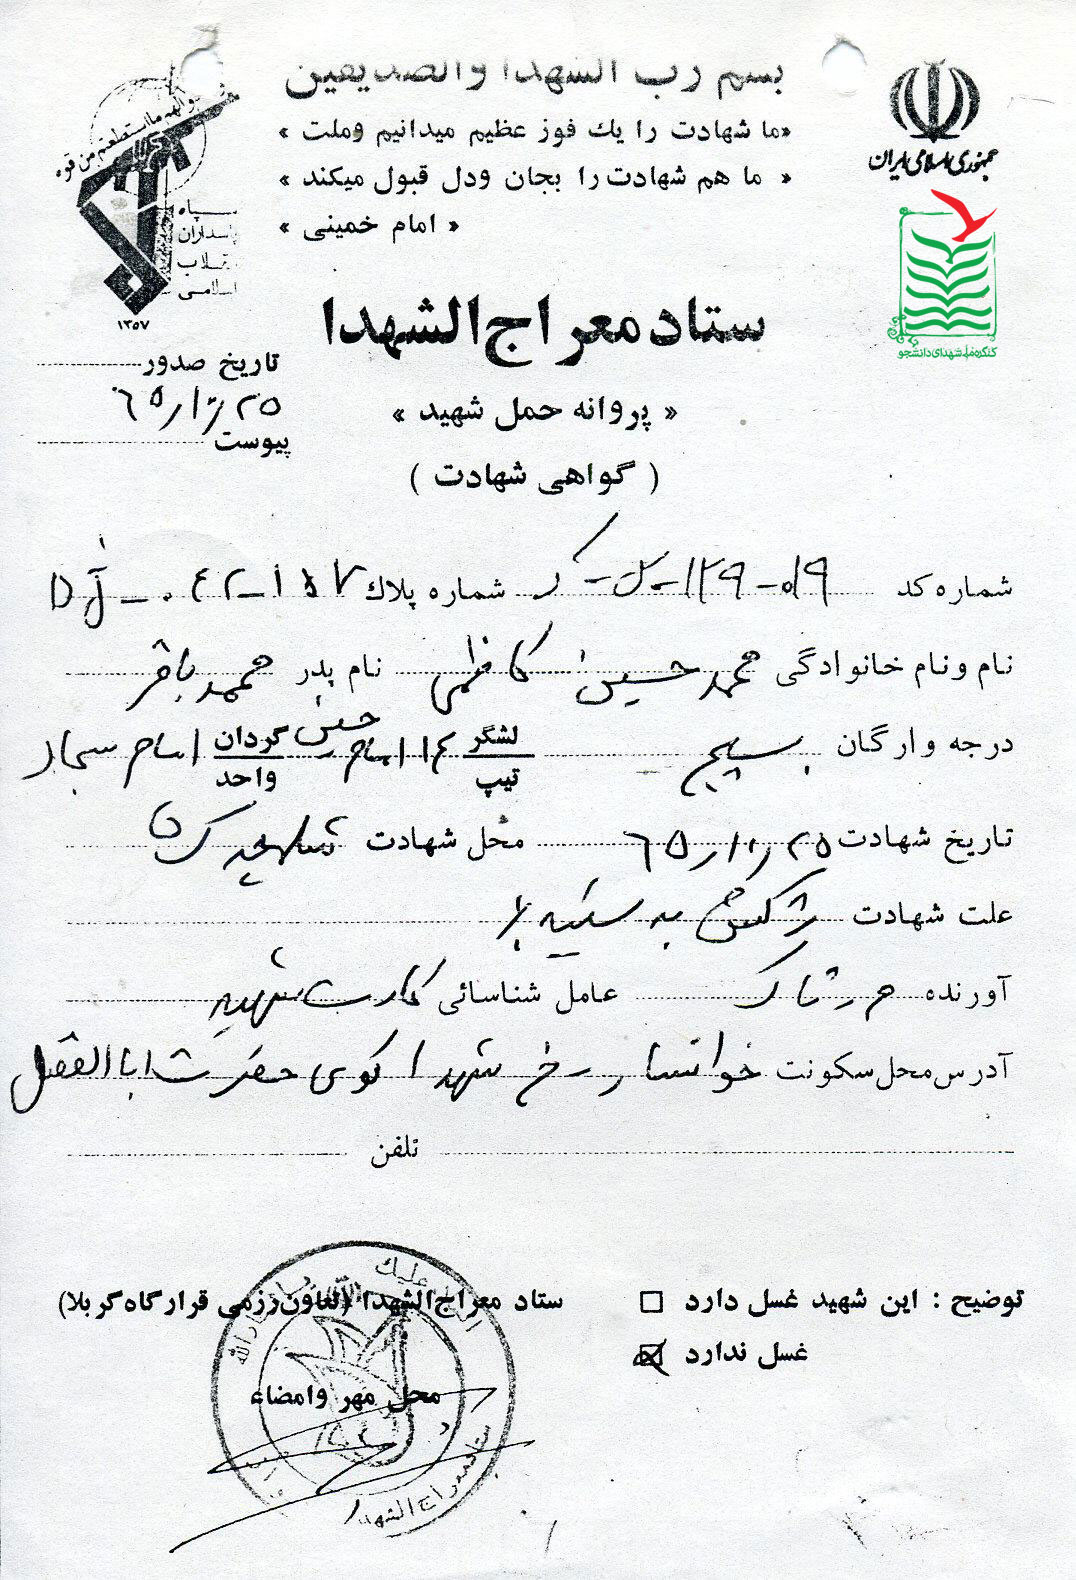 بسم رب الشهدا والصدیقین
«ما شهادت را یک فوز عظیم میدانیم وملت»
« ما هم شهادت را بجان ودل قبول میکند»
« امام خمینی »
جمهوری اسلامی ایران
واعدوا لهم ما استطعتم من قوه
سپاه
پاسداران
انقلاب
اسلامی
۱۳۵۷
کنگره ملی شهدای دانشجو
ستاد معراج الشهدا
تاریخ صدور
۶۵/۱۰/۲۵
پیوست
« پروانه حمل شهید »
( گواهی شهادت )
شماره کد شماره پلاک
نام و نام خانوادگی محمد حسین کاظمی نام پدر محمد باقر
درجه و ارگان بسیج لشگر تیپ ۱۴ امام حسین گردان واحد امام سجاد
تاریخ شهادت ۶۵/۱۰/۲۵ محل شهادت شلمچه
علت شهادت ترکش به سینه
آورنده عامل شناسائی کارت شهید
آدرس محل سکونت خوانسار خ شهدا کوی حضرت اباالفضل
تلفن
توضیح : این شهید غسل دارد
غسل ندارد
ستاد معراج الشهدا (تعاون رزمی قرارگاه کربلا)
محل مهر وامضاء
ستاد معراج الشهدا